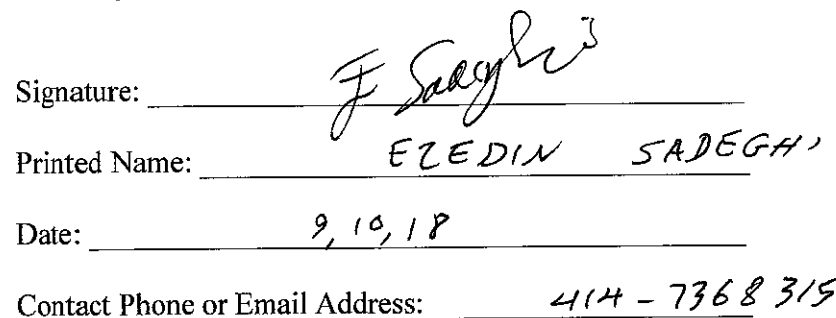 Signature: E Sadeghi
Printed Name: EZEDIN SADEGHI
Date: 9,10,18
Contact Phone or Email Address: 414-7368315